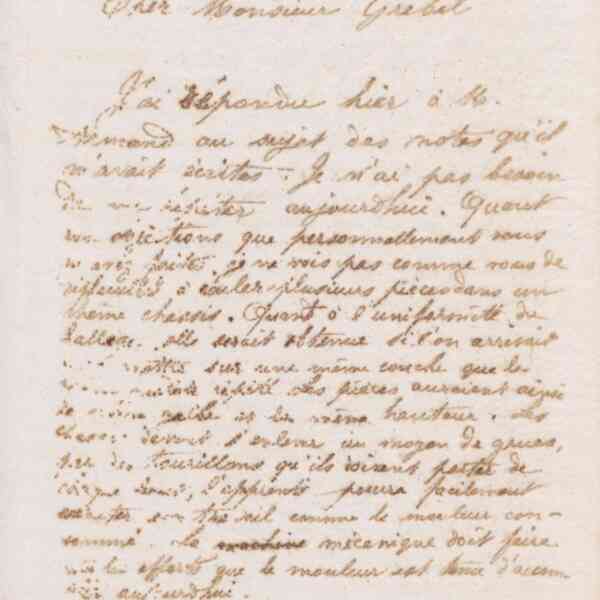 Cher Monsieur Grebel
J'ai répondu hier à M.
au sujet des notes qu'il
m'avait écrites. Je n'ai pas besoin
De me répéter aujourdhui. Quant
objections que personnellement vous
m'avez faites je ne vois pas comme vous de
difficultés à couler plusieurs pièces dans un
même chassis. Quant à l'uniformité du
elle serait obtenue si l'on arrivait
mettre sur une même couche que le
Les pièces auraient ainsi
la même et la même hauteur. Les
chassis devront s'enlever au moyen de grues,
par des tourillons qu'ils doivent porter de
l'apprenti pourra facilement
travail comme le mouleur con-
sommé. La machine mécanique doit faire
les efforts que le mouleur est tenu
aujourdhui.